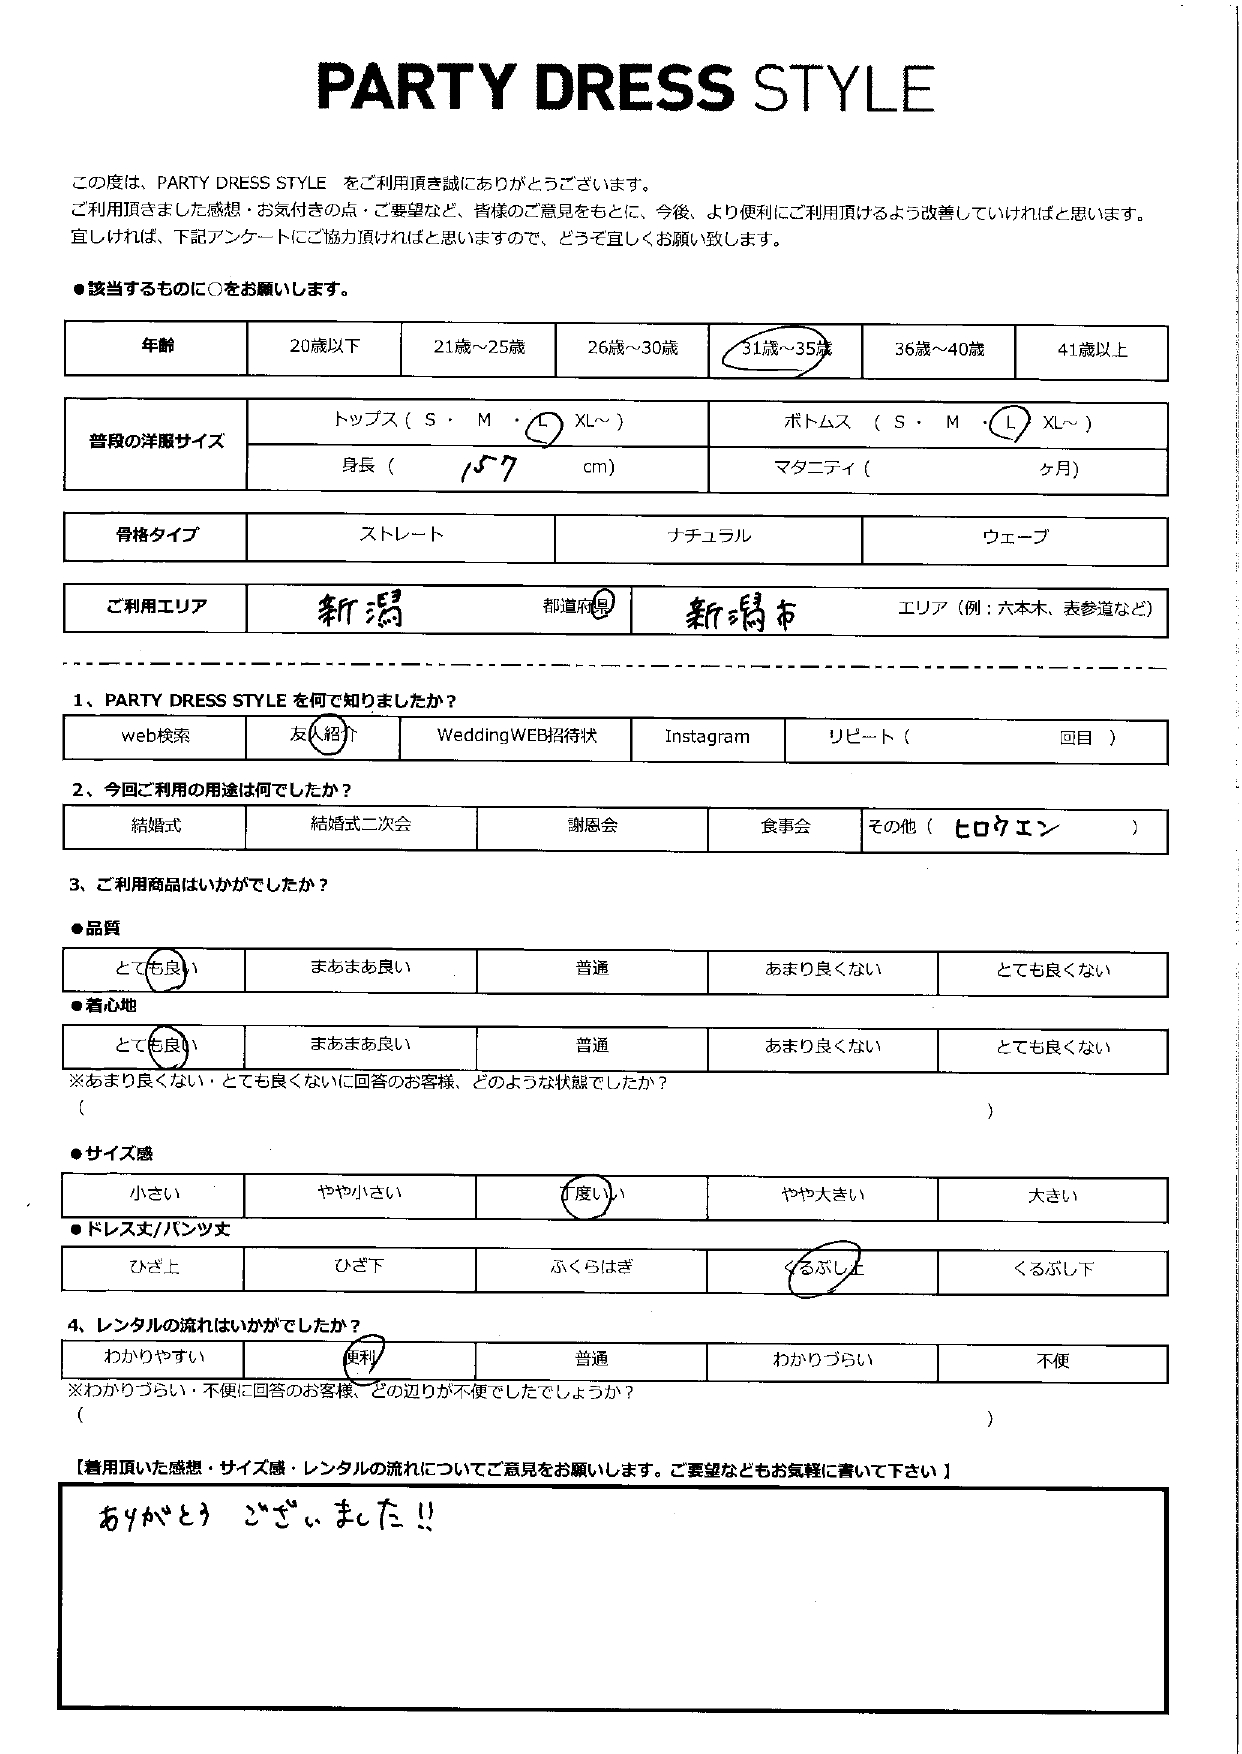 PARTY DRESS STYLE
この度は、PARTY DRESS STYLE をご利用頂き誠にありがとうございます。
ご利用頂きました感想・お気付きの点・ご要望など、皆様のご意見をもとに、今後、より便利にご利用頂けるよう改善していければと思います。
宜しければ、下記アンケートにご協力頂ければと思いますので、どうぞ宜しくお願い致します。
●該当するものに○をお願いします。
年齢 20歳以下 21歳～25歳 26歳～30歳 31歳～35歳 36歳～40歳 41歳以上
普段の洋服サイズ トップス ( S ・ M ・ L XL～ ) ボトムス ( S ・ M ・ L XL～ )
身長 ( 157 cm) マタニティ ( ケ月)
骨格タイプ ストレート ナチュラル ウェーブ
ご利用エリア 新潟 都道府県 新潟市 エリア（例：六本木、表参道など）
1、PARTY DRESS STYLE を何で知りましたか？
web検索 友人紹介 WeddingWEB招待状 Instagram リピート ( 回目 )
2、今回ご利用の用途は何でしたか？
結婚式 結婚式二次会 謝恩会 食事会 その他 ( ヒロウエン )
3、ご利用商品はいかがでしたか？
●品質
とても良い まあまあ良い 普通 あまり良くない とても良くない
●着心地
とても良い まあまあ良い 普通 あまり良くない とても良くない
※あまり良くない・とても良くないに回答のお客様、どのような状態でしたか？
( )
●サイズ感
小さい やや小さい 丁度いい やや大きい 大きい
●ドレス丈/パンツ丈
ひざ上 ひざ下 ふくらはぎ くるぶし上 くるぶし下
4、レンタルの流れはいかがでしたか？
わかりやすい 便利 普通 わかりづらい 不便
※わかりづらい・不便に回答のお客様、どの辺りが不便でしたでしょうか？
( )
【着用頂いた感想・サイズ感・レンタルの流れについてご意見をお願いします。ご要望などもお気軽に書いて下さい 】
ありがとう ございました!!